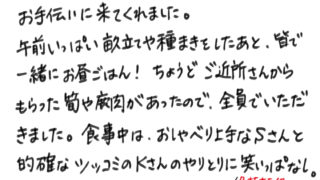 お手伝いに来てくれました。
午前いっぱい畝立てや種まきをしたあと、皆で
一緒にお昼ごはん！ ちょうどご近所さんから
もらった筍や鹿肉があったので、全員でいただ
きました。食事中は、おしゃべり上手なSさんと
的確なツッコミのKさんのやりとりに笑いっぱなし。